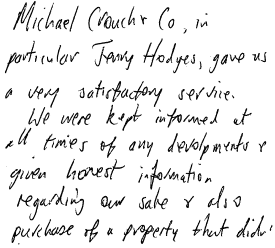 Michael Crouch & Co, in
particular Jenny Hodges, gave us
a very satisfactory service.
We were kept informed at
all times of any devolpments &
given honest information
regarding our sale & also
purchase of a property that didn't